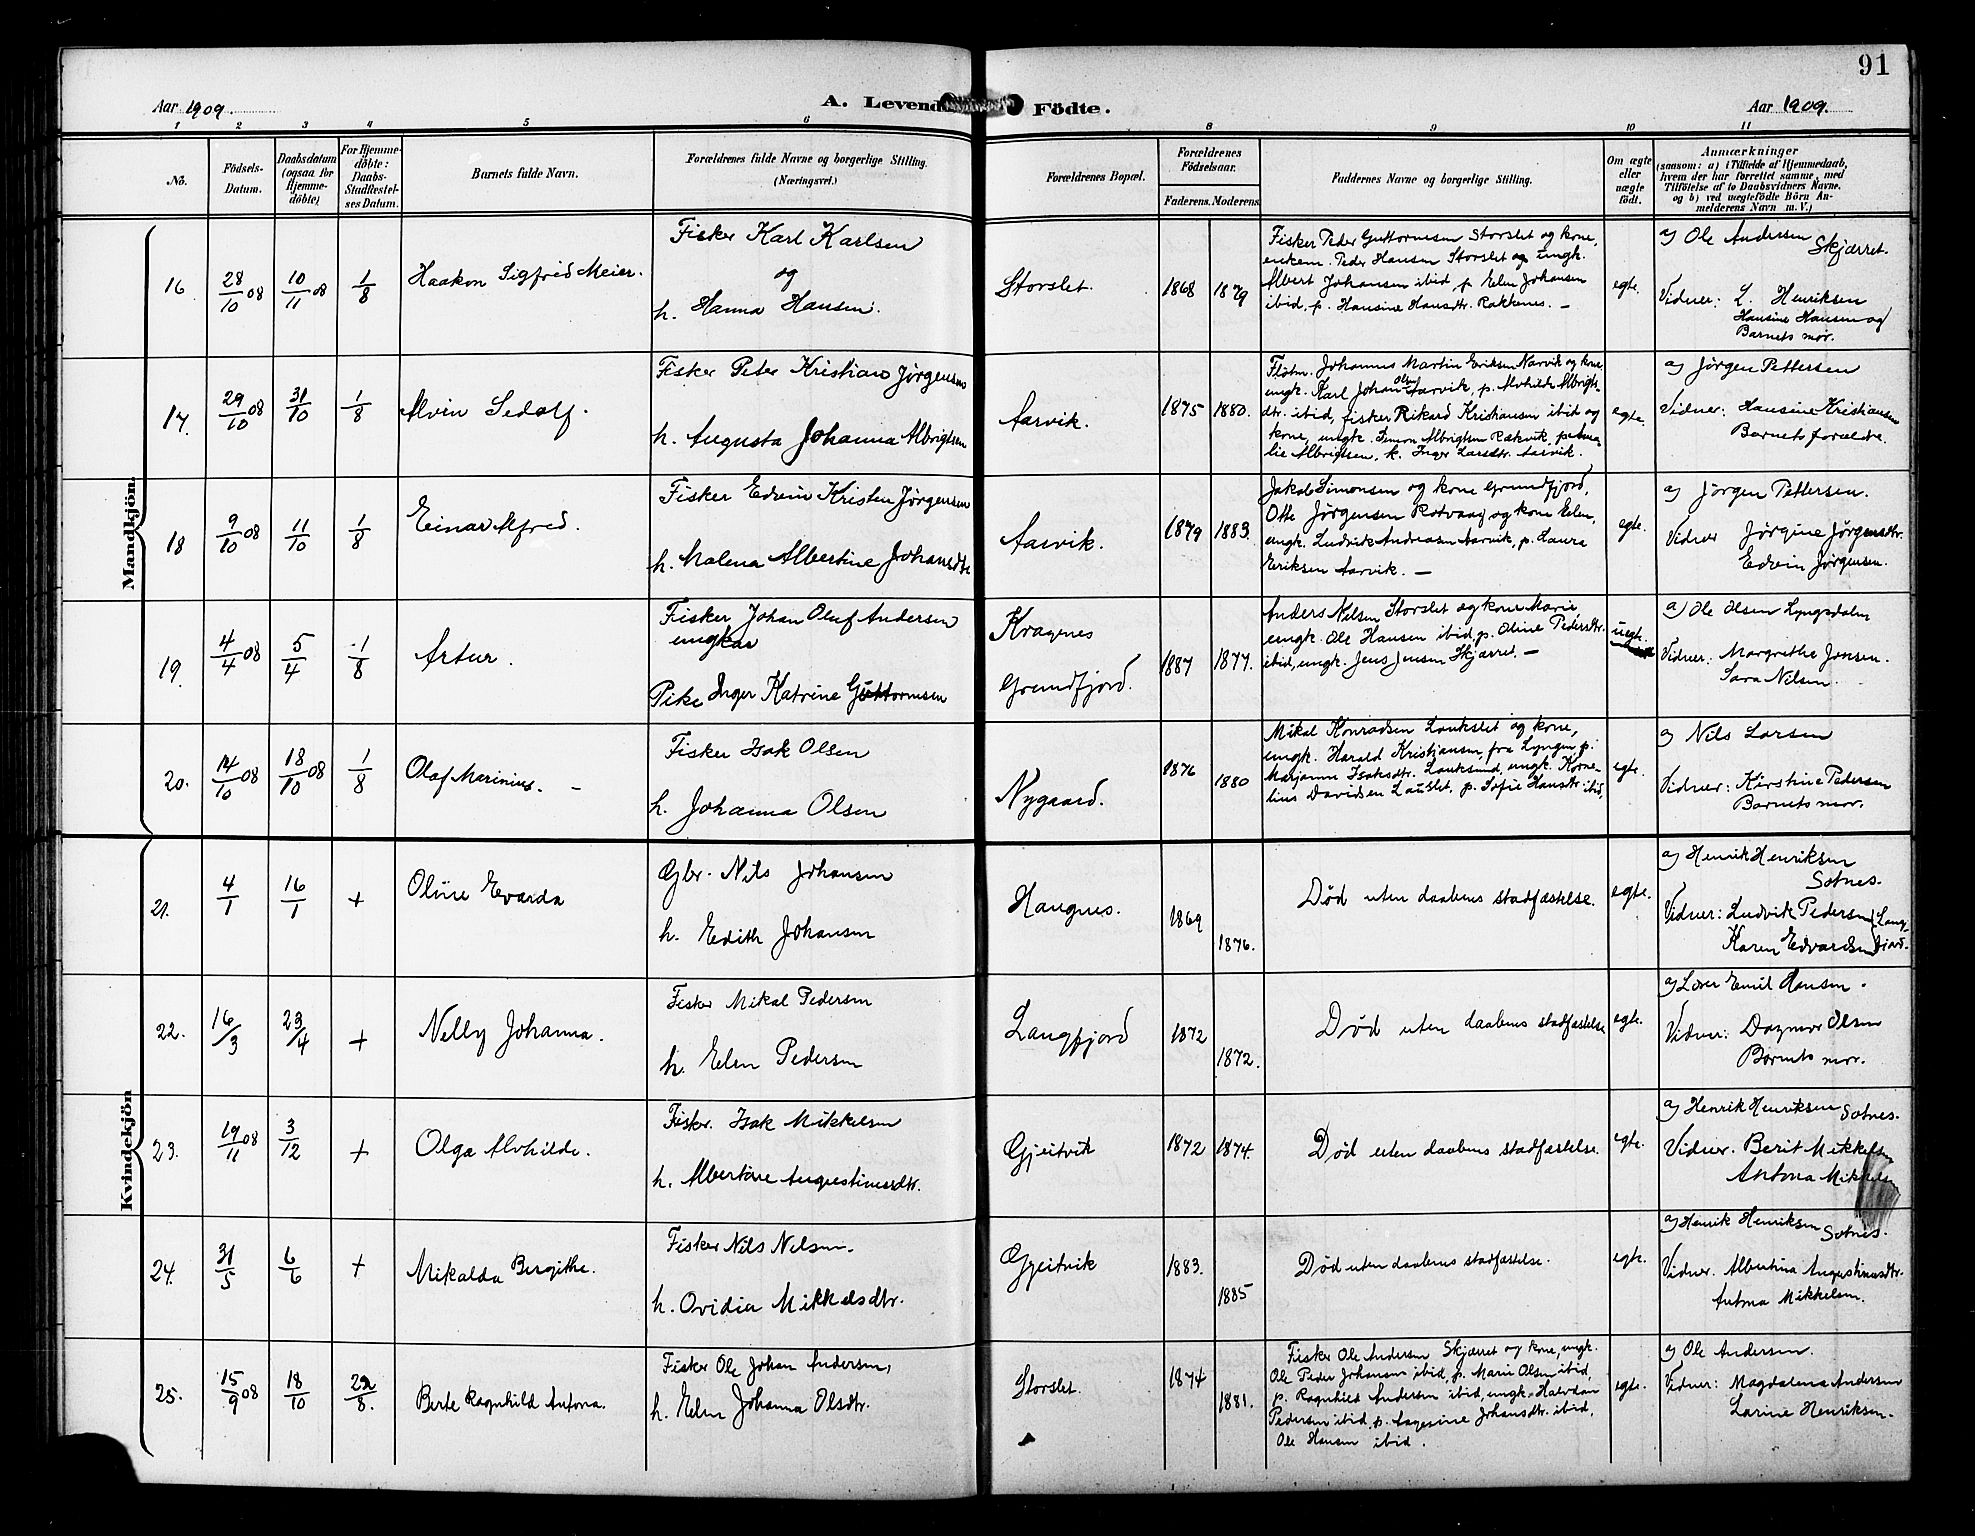 91
Aar 1909.
A. Levende Födte.
Aar 1909.
1 2 3 4 5 6 8 9 10 11
No.
Födsels-
Datum.
Daabsdatum
(ogsaa for
Hjemme-
döbte)
For Hjemme-
döbte:
Daabs-
Stadfestel-
ses Datum.
Barnets fulde Navn.
Forældrenes fulde Navne og borgerlige Stilling.
(Næringsvei.)
Forældrenes Bopæl.
Forældrenes
Födselsaar.
Faderens. Moderens.
Faddernes Navne og borgerlige Stilling.
Om ægte
eller
uægte
födt.
Anmærkninger
(saasom: a) i Tilfælde af Hjemmedaab,
hvem der har forrettet samme, med
Tilföielse af to Daabsvidners Navne,
og b) ved uægtefödte Börn An-
melderens Navn m. V.)
Mandkjön.
16 28/10 08 10/11 08 1/8 Haakon Sigfred Meier.
Fisker Karl Karlsen
og
h. Hanna Hansen.
Storslet. 1868 1879
Fisker Peder Guttormsen Storslet og kone,
enkem. Peder Hansen Storslet og ungk.
Albert Johansen ibid, p. Elen Johansen
ibid, p. Hansine Hansdtr. Rakkenes. —
egte.
a) Ole Andersen
Skjærret.
Vidner: L. Henriksen
Hansine Hansen og
Barnets mor.
17. 29/10 08 31/10 1/8 Alvin Sedolf.
Fisker Peter Kristian Jørgensen
h. Augusta Johanna Albrigtsen
Aarvik. 1875 1880.
Fløtm. Johannes Martin Eriksen Narvik og kone,
ungk. Karl Johan Olsen Aarvik, p. Alvhilde Albrigts-
dtr. ibid, fisker Rikard Kristiansen ibid og
kone, ungk. Simon Albrigtsen Rækvik, p. Ama-
lie Albrigtsen, k. Inger Larsdtr. Aarvik.
egte.
a) Jørgen Pettersen
Vidner: Hansine Kristiansen
Barnets forældre.
18 9/10 08 11/10 1/8 Einar Alfred.
Fisker Edvin Kristen Jørgensen
h. Malena Albertine Johansdtr
Aarvik. 1879 1883.
Jakob Simonsen og kone Grundfjord,
Otte Jørgensen Rotvaag og kone Elen,
ungk. Ludvik Andreasen Aarvik, p. Laura
Eriksen Aarvik. —
egte.
a) Jørgen Pettersen.
Vidner Jørgine Jørgensdtr.
Edvin Jørgensen.
19. 4/4 08 5/4 1/8 Artur.
Fisker Johan Oluf Andersen
ungkar
Pike Inger Katrine Guttormsen
Kragnes
Grundfjord. 1887 1877.
Anders Nilsen Storslet og kone Marie,
ungk. Ole Hansen ibid, p. Oline Pedersdtr.
ibid, ungk. Jens Jensen Skjærret. —
uegte.
a) Ole Olsen Lyngsdalen
Vidner: Margrethe Jensen.
Sara Nilsen.
20. 14/10 08 18/10 08 1/8 Olaf Marinius. —
Fisker Isak Olsen
h. Johanna Olsen
Nygaard. 1876 1880
Mikal Konradsen Laukslet og kone,
ungk. Harald Kristjansen, fra Lyngen, p.
Marjanna Isaksdtr. Lauksund, ungk. Korne-
lius Davidsen Lauslet, p. Sofie Hansdtr. ibid,
egte.
a) Nils Larsen
Vidner: Kirstine Pedersen
Barnets mor.
Kvindekjön
21. 4/1 16/1 + Oline Evarda
Gbr. Nils Johansen
h. Edith Johansen
Haugnes. 1869 1876.
Død uten daabens stadfæstelse.
egte.
a) Henrik Henriksen
Sotnes.
Vidner: Ludvik Pedersen Lang-
Karen Edvardsen fjord.
22. 16/3 23/4 + Nelly Johanna.
Fisker Mikal Pedersen
h. Elen Pedersen
Langfjord 1872 1872.
Død uten daabens stadfæstelse
egte.
a) Lærer Emil Hansen.
Vidner: Dagmar Olsen
Barnets mor.
23. 19/11 08 3/12 + Olga Alvhilde.
Fisker. Isak Mikkelsen
h. Albertine Augustinusdtr.
Gjeitvik 1872 1874.
Død uten daabens stadfæstelse.
egte.
a) Henrik Henriksen Sotnes.
Vidner. Berit Mikkelsen
Antona Mikkelsen
24. 31/5 6/6 + Mikalda Bergithe.
Fisker Nils Nilsen.
h. Ovidia Mikkelsdtr.
Gjeitvik 1883. 1885
Død uten daabens stadfæstelse.
egte.
a) Henrik Henriksen Sotnes.
Vidner. Albertina Augustinusdtr.
Antona Mikkelsen.
25. 15/9 08 18/10 22/8. Berte Ragnhild Antona.
Fisker Ole Johan Andersen,
h. Elen Johanna Olsdtr.
Storslet. 1874 1881.
Fisker Ole Andersen Skjærret og kone, ungk.
Ole Peder Johansen ibid, p. Marie Olsen ibid,
p. Ragnhild Andersen ibid, ungk. Halvdan
Pedersen ibid, p. Aagesine Johansdtr. ibid,
Ole Hansen ibid.
egte.
a) Ole Andersen.
Vidner: Magdalena Andersen
Larine Henriksen.